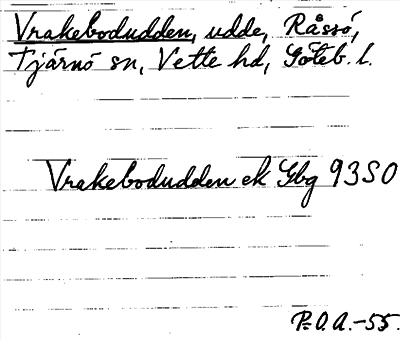 Vrakebodudden, udde, Råssö,
Tjärnö sn, Vette hd, Göteb. l.
Vrakebodudden ek Gbg 93 SO
P.O.A.-55.